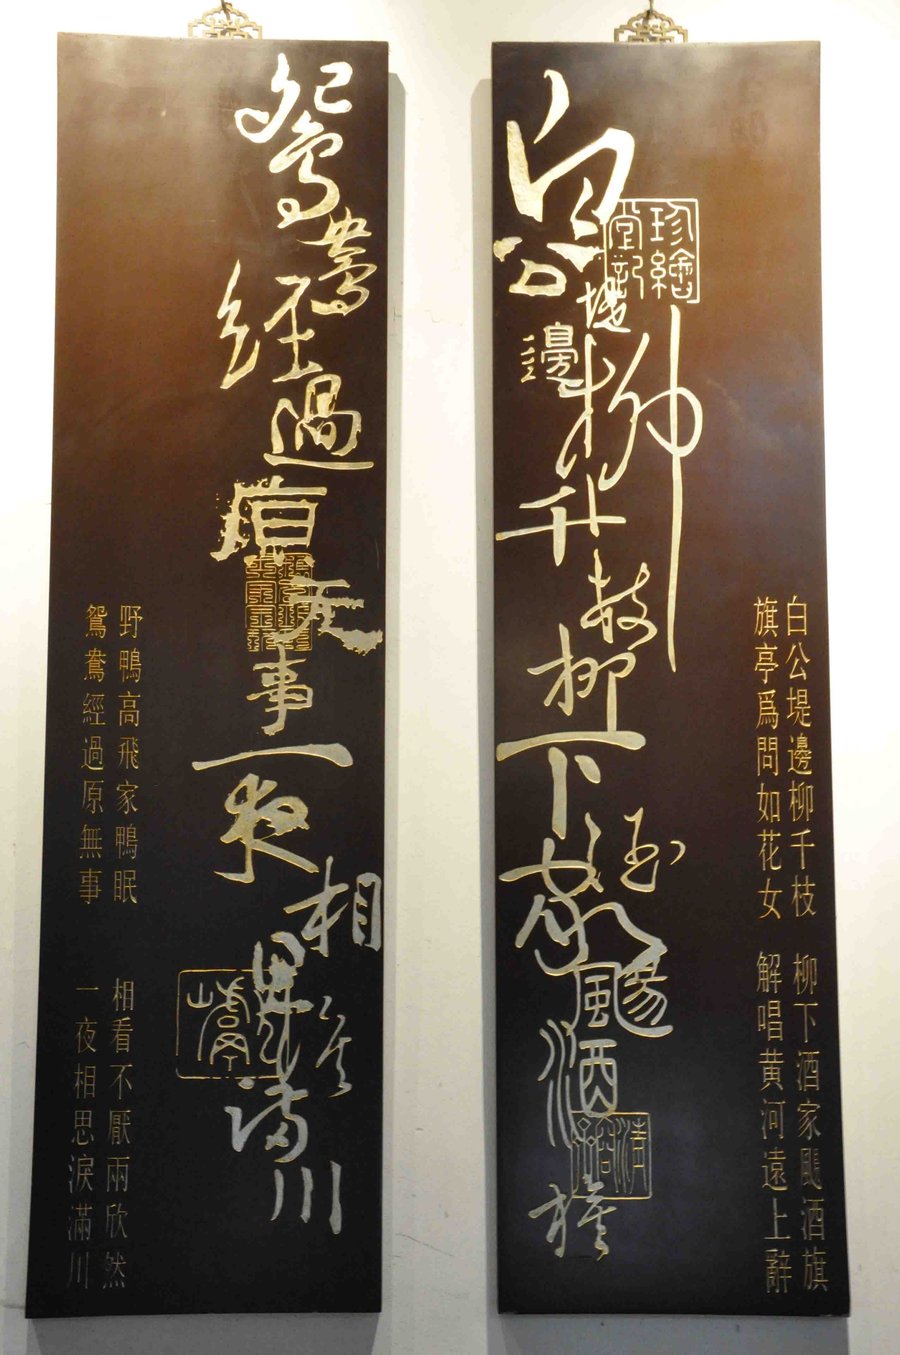 白公堤邊柳千枝 柳下酒家颺酒旗
旗亭爲問如花女 解唱黄河遠上辭
珍繪堂記
白公堤邊柳千枝柳下酒家颺酒旗
鴛鴦經過原無事一夜相思淚滿川
野鴨高飛家鴨眠 相看不厭雨欣然
鴛鴦經過原無事 一夜相思淚滿川